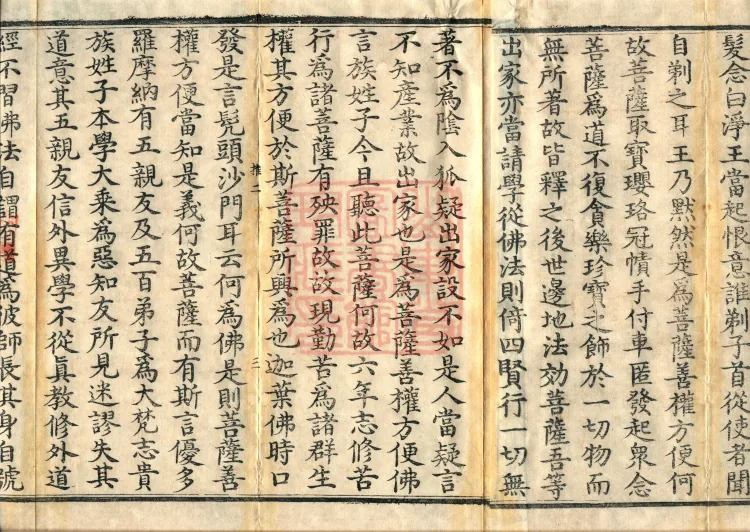 髮念白淨王當起恨意誰剃子首從使者聞
自剃之耳王乃默然是為菩薩善權方便何
故菩薩取寶瓔珞冠幘手付車匿發起眾念
菩薩為道不復貪樂珍寶之飾於一切物而
無所著故皆釋之後世邊地法効菩薩吾等
出家亦當請學從佛法則倚四賢行一切無
著不為陰入狐疑出家設不如是人當疑言
不知產業故出家也是為菩薩善權方便佛
言族姓子今且聽此菩薩何故六年志修苦
行為諸菩薩有殃罪故故現勤苦為諸群生
權其方便於斯菩薩所興為也迦葉佛時口
推二
三
發是言髠頭沙門耳云何為佛是則菩薩善
權方便當知是義何故菩薩而有斯言優多
羅摩納有五親友及五百弟子為大梵志貴
族姓子本學大乘為惡知友所見迷謬失其
道意其五親友信外異學不從真教修外道
經不習佛法自謂有道為彼師長其身自號